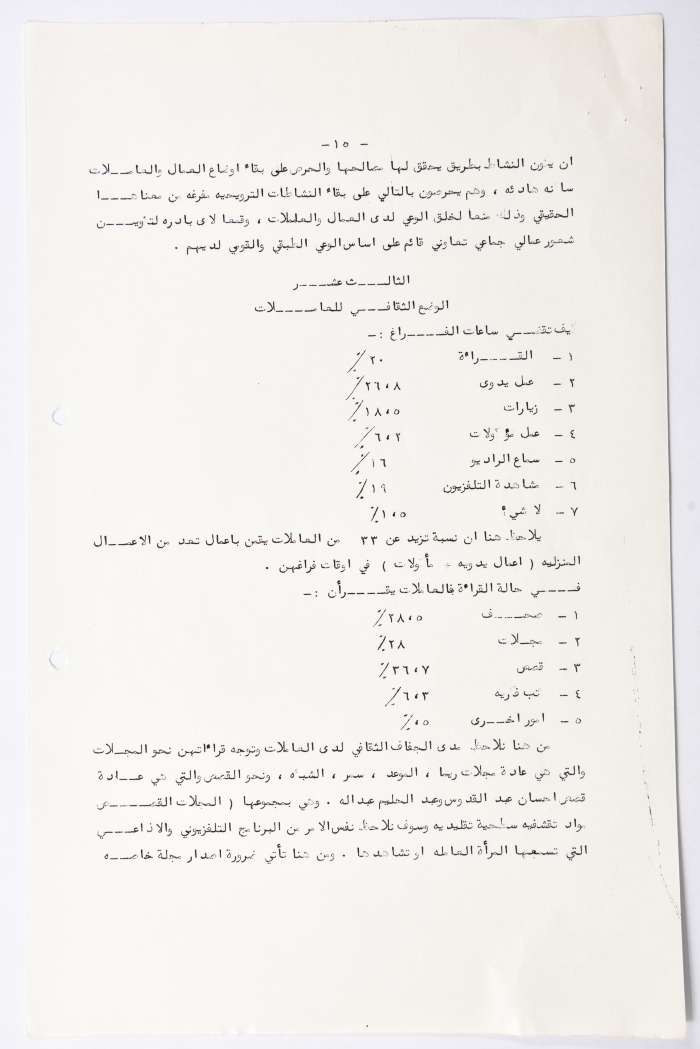 - ١٥ -
ان يكون النشاط بطريق يحقق لها مصالحها والحرص على بقاء اوضاع العمال والعاملات
ساكنه هادئه ، وهم يحرصون بالتالي على بقاء النشاطات الترويحيه مفرغه من معناها
الحقيقي وذلك منعا لخلق الوعي لدى العمال والعاملات ، وقمعا لاى بادره لتكوين
شعور عمالي جماعي تعاوني قائم على اساس الوعي الطبقي والقومي لديهم .
الثالث عشر
الوضع الثقافي للعاملات
كيف تقضي ساعات الفراغ : -
١ - القراءة ٢٠ ٪
٢ - عمل يدوى ٢٦،٨ ٪
٣ - زيارات ١٨،٥ ٪
٤ - عمل مؤكولات ٦،٢ ٪
٥ - سماع الراديو ١٦ ٪
٦ - مشاهدة التلفزيون ١٩ ٪
٧ - لا شيء ١،٥ ٪
يلاحظ هنا ان نسبة تزيد عن ٣٣ من العاملات يقمن باعمال تعد من الاعمال
المنزليه ( اعمال يدويه + مأكولات ) في اوقات فراغهن .
في حالة القراءة فالعاملات يقرأن : -
١ - صحف ٢٨،٥ ٪
٢ - مجلات ٢٨ ٪
٣ - قصص ٣٦،٧ ٪
٤ - كتب فكريه ٦،٣ ٪
٥ - امور اخرى ،٥ ٪
من هنا نلاحظ مدى الجفاف الثقافي لدى العاملات وتوجه قراءاتهن نحو المجلات
والتي هي عادة مجلات ريما ، الموعد ، سمر ، الشبكه ، ونحو القصص والتي هي عادة
قصص احسان عبد القدوس وعبد الحليم عبدالله . وهي بمجموعها ( المجلات القصص
مواد تثقيفيه سطحية تقليديه وسوف نلاحظ نفس الامر من البرنامج التلفزيوني والاذاعي
التي تسمعها المرأة العامله او تشاهدها . ومن هنا تأتي ضرورة اصدار مجلة خاصه